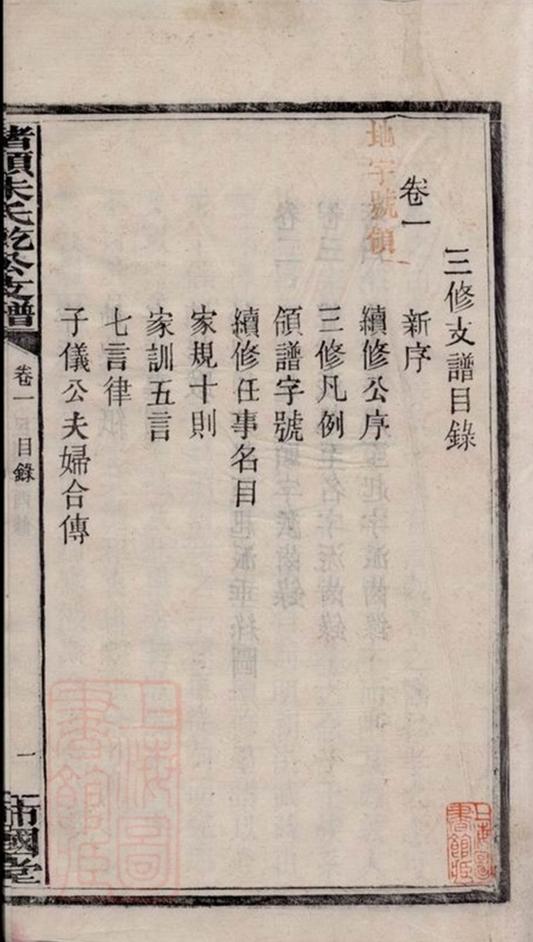 三修支譜目錄
卷一
新序
續修公序
三修凡例
領譜字號
續修任事名目
家規十則
家訓五言
七言律
子儀公夫婦合傳
朱氏乾公支譜
卷一
目錄
一
國堂
地字號領
上海圖書館藏
上海圖書館藏